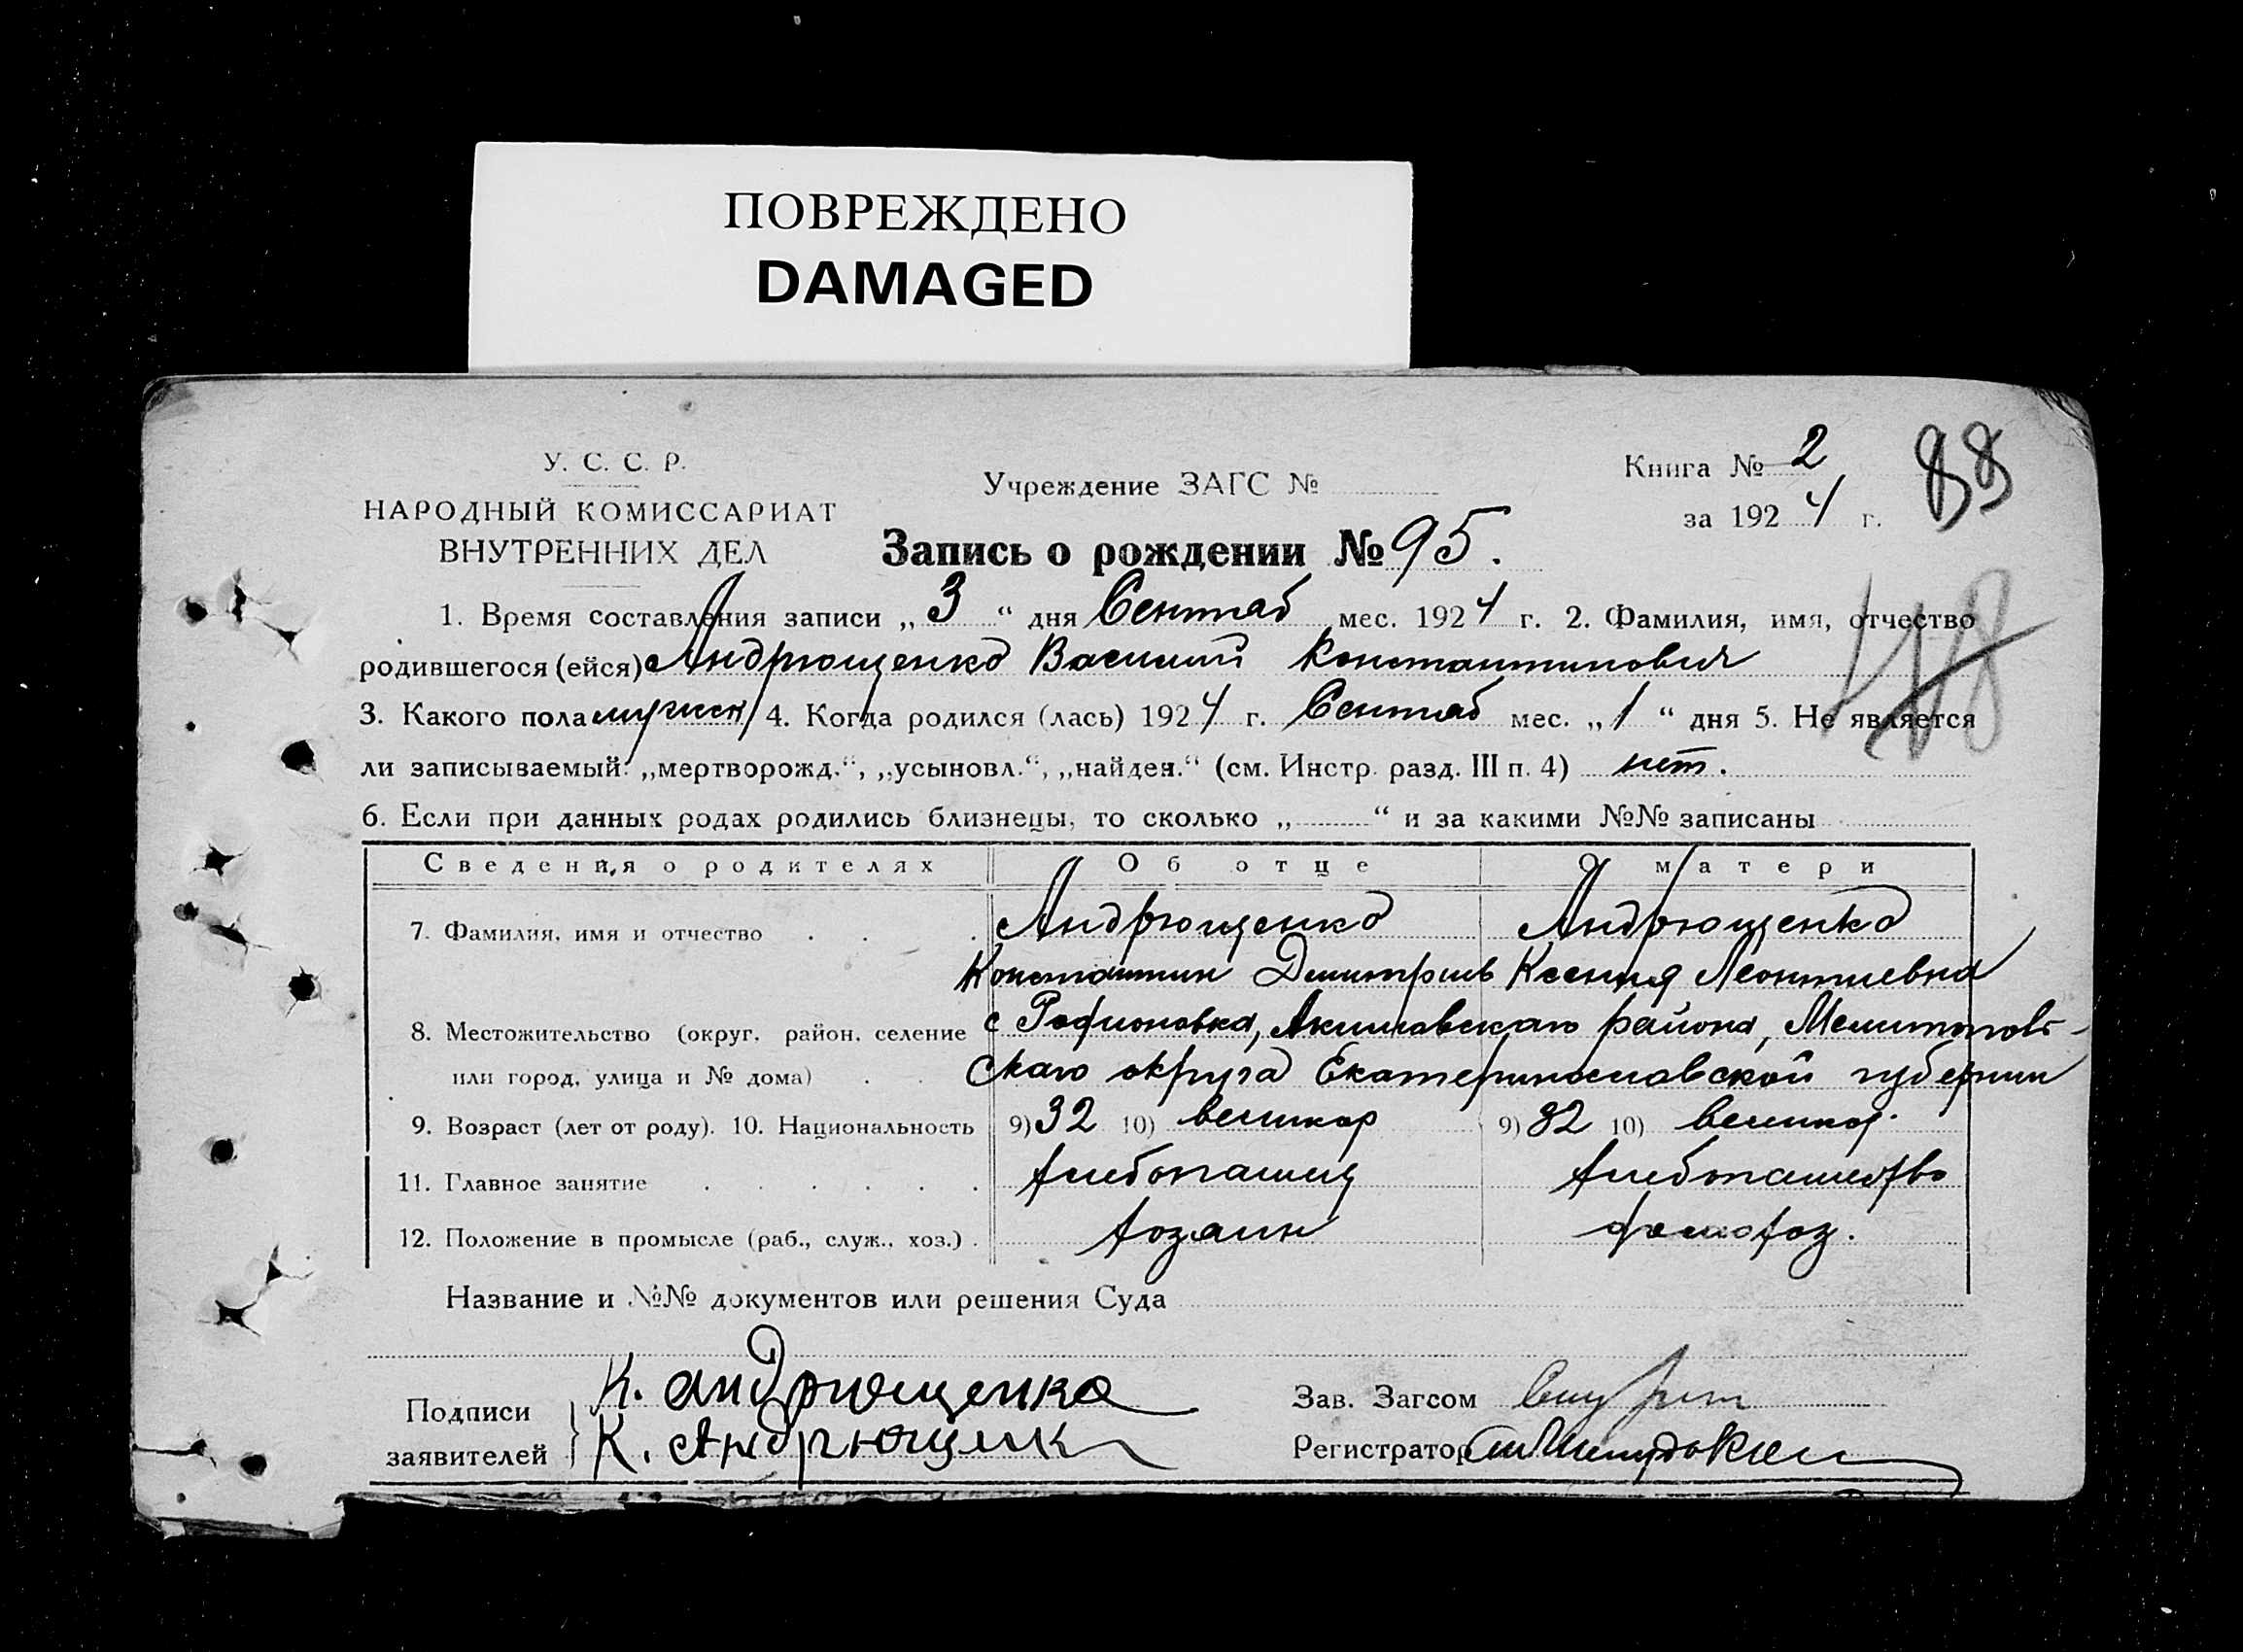 ПОВРЕЖДЕНО
DAMAGED
У. С. С. Р.
НАРОДНЫЙ КОМИССАРИАТ
ВНУТРЕННИХ ДЕЛ
Учреждение ЗАГС №
Книга № 2
за 1924 г.
88
Запись о рождении № 95.
118
1. Время составления записи „ 3 “ дня Сентяб мес. 1924 г. 2. Фамилия, имя, отчество
родившегося (ейся) Андрющенко Василий Константинович
3. Какого пола мужск 4. Когда родился (лась) 1924 г. Сентяб мес. „ 1 “ дня 5. Не является
ли записываемый: „мертворожд.“, „усыновл.“, „найден.“ (см. Инстр. разд. III п. 4) нет.
6. Если при данных родах родились близнецы, то сколько „ “ и за какими №№ записаны
Сведения о родителях Об отце О матери
7. Фамилия, имя и отчество Андрющенко Андрющенко
Константин Дмитриев Ксения Леонтиевна
8. Местожительство (округ, район, селение с Родионовка, Акимовскаго района, Мелитопов-
или город, улица и № дома) скаго округа Екатеринославской губернии
9. Возраст (лет от роду). 10. Национальность 9) 32 10) великор 9) 32 10) великор.
11. Главное занятие хлебопашец хлебопашество
12. Положение в промысле (раб., служ., хоз.) хозаин домохоз.
Название и №№ документов или решения Суда
Подписи К. Андрющенко
заявителей К. Андрющенк
Зав. Загсом
Регистратор